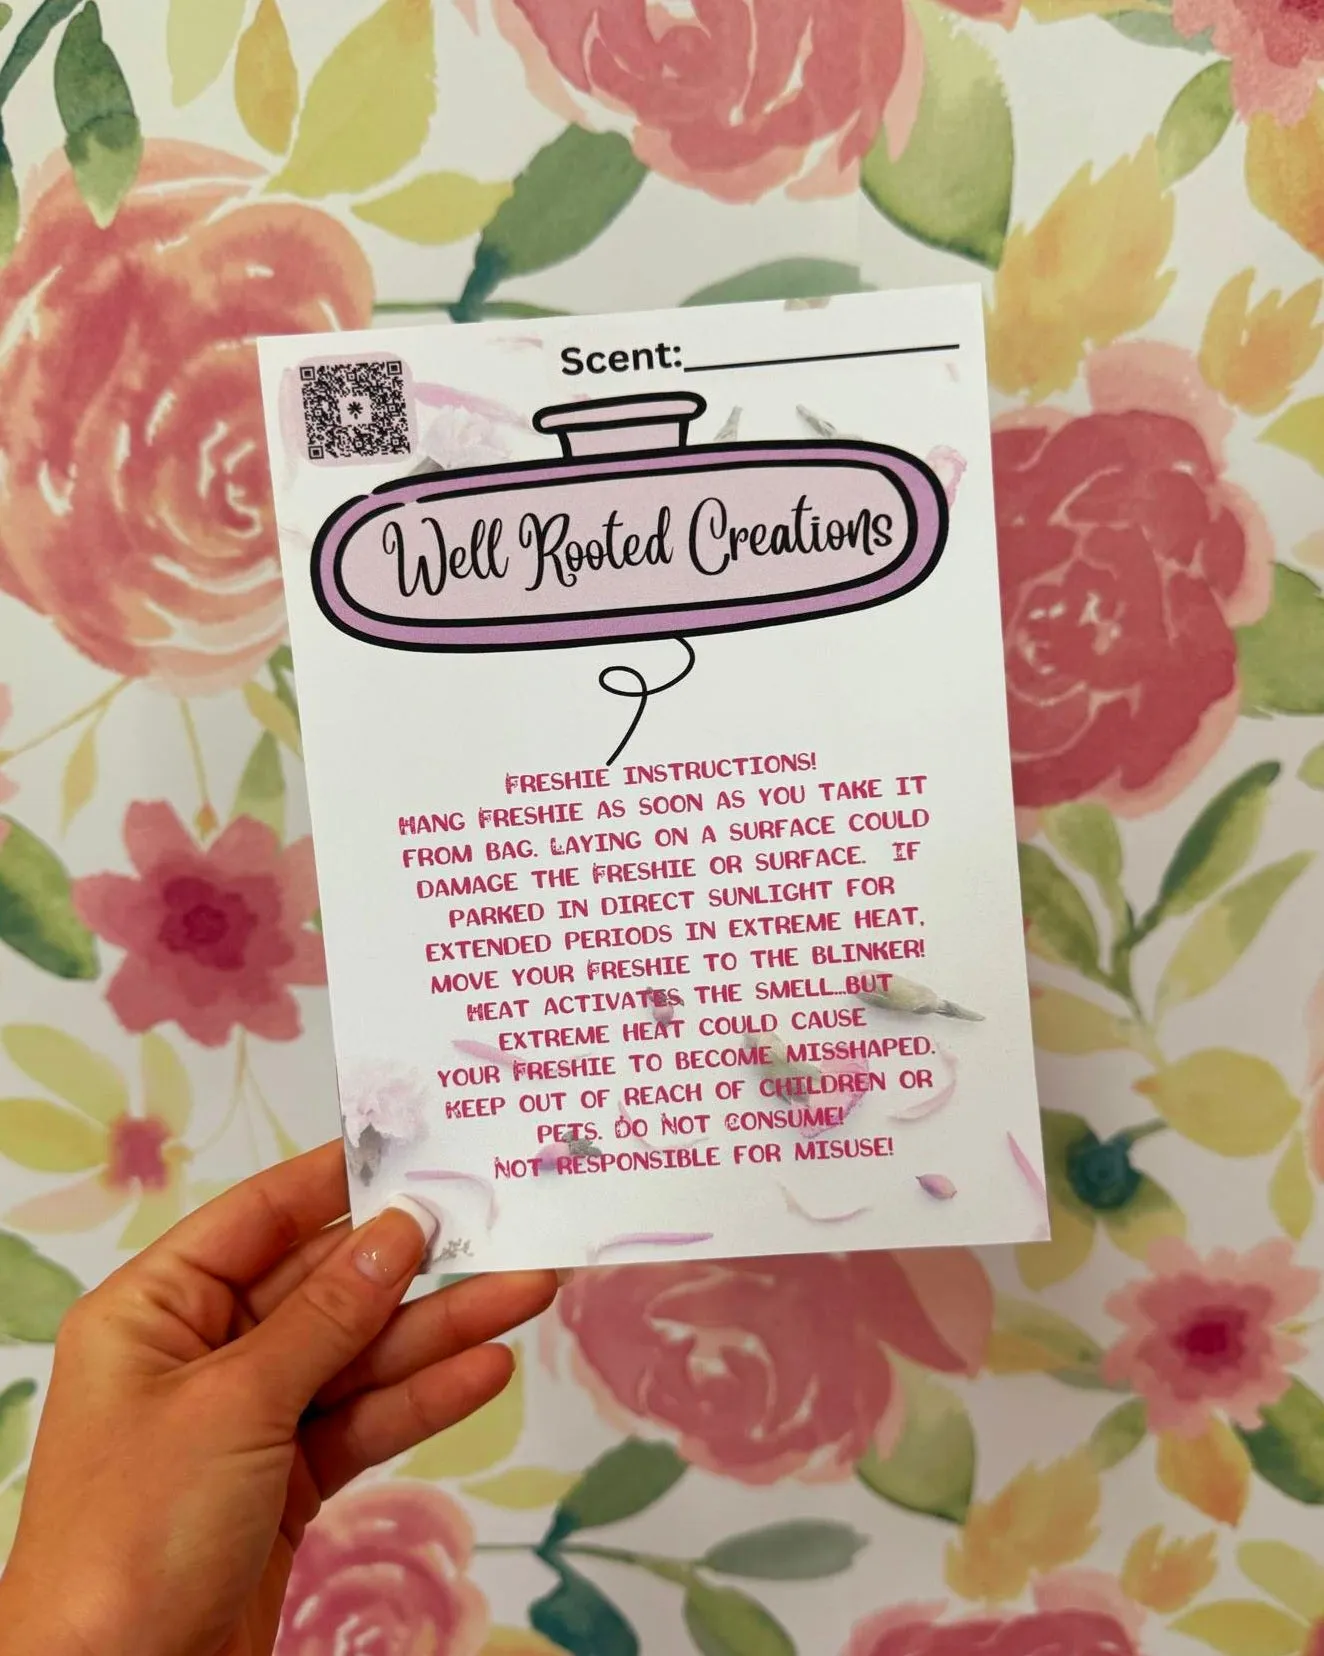 Scent:
Well Rooted Creations
FRESHIE INSTRUCTIONS!
HANG FRESHIE AS SOON AS YOU TAKE IT
FROM BAG. LAYING ON A SURFACE COULD
DAMAGE THE FRESHIE OR SURFACE. IF
PARKED IN DIRECT SUNLIGHT FOR
EXTENDED PERIODS IN EXTREME HEAT,
MOVE YOUR FRESHIE TO THE BLINKER!
HEAT ACTIVATES THE SMELL...BUT
EXTREME HEAT COULD CAUSE
YOUR FRESHIE TO BECOME MISSHAPED.
KEEP OUT OF REACH OF CHILDREN OR
PETS. DO NOT CONSUME!
NOT RESPONSIBLE FOR MISUSE!